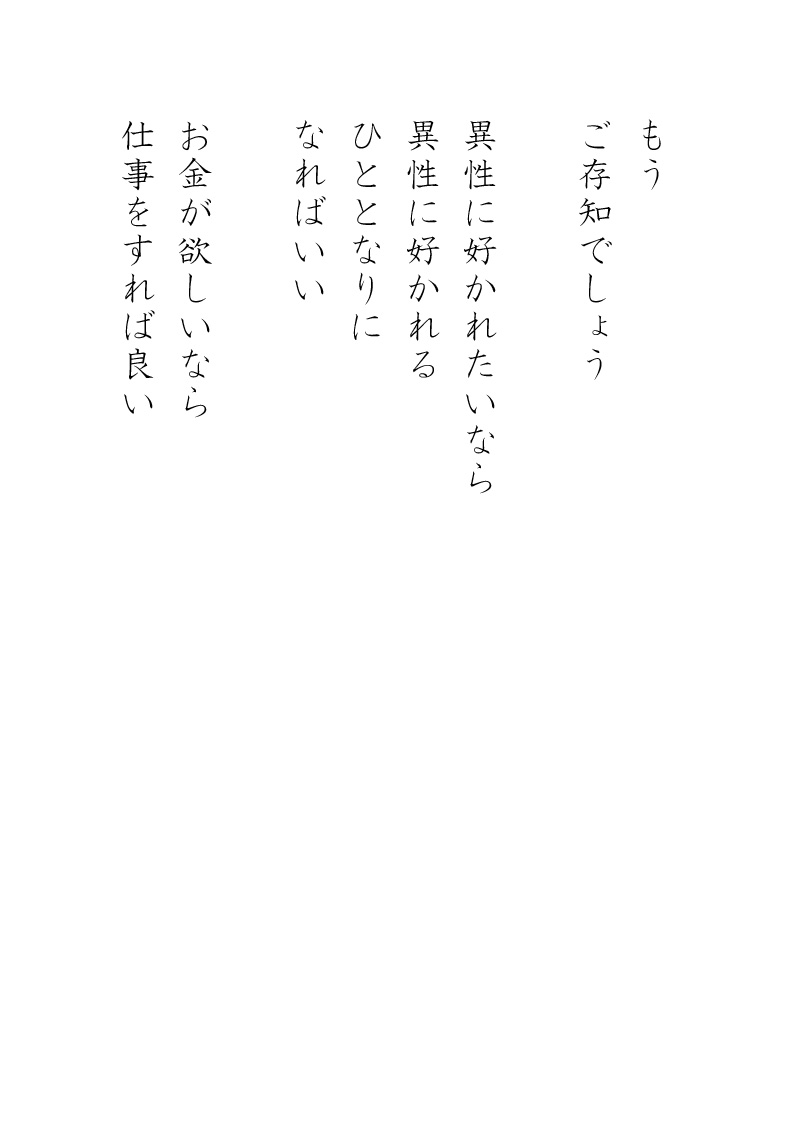 もう
ご存知でしょう
異性に好かれたいなら
異性に好かれる
ひととなりに
なればいい
お金が欲しいなら
仕事をすれば良い